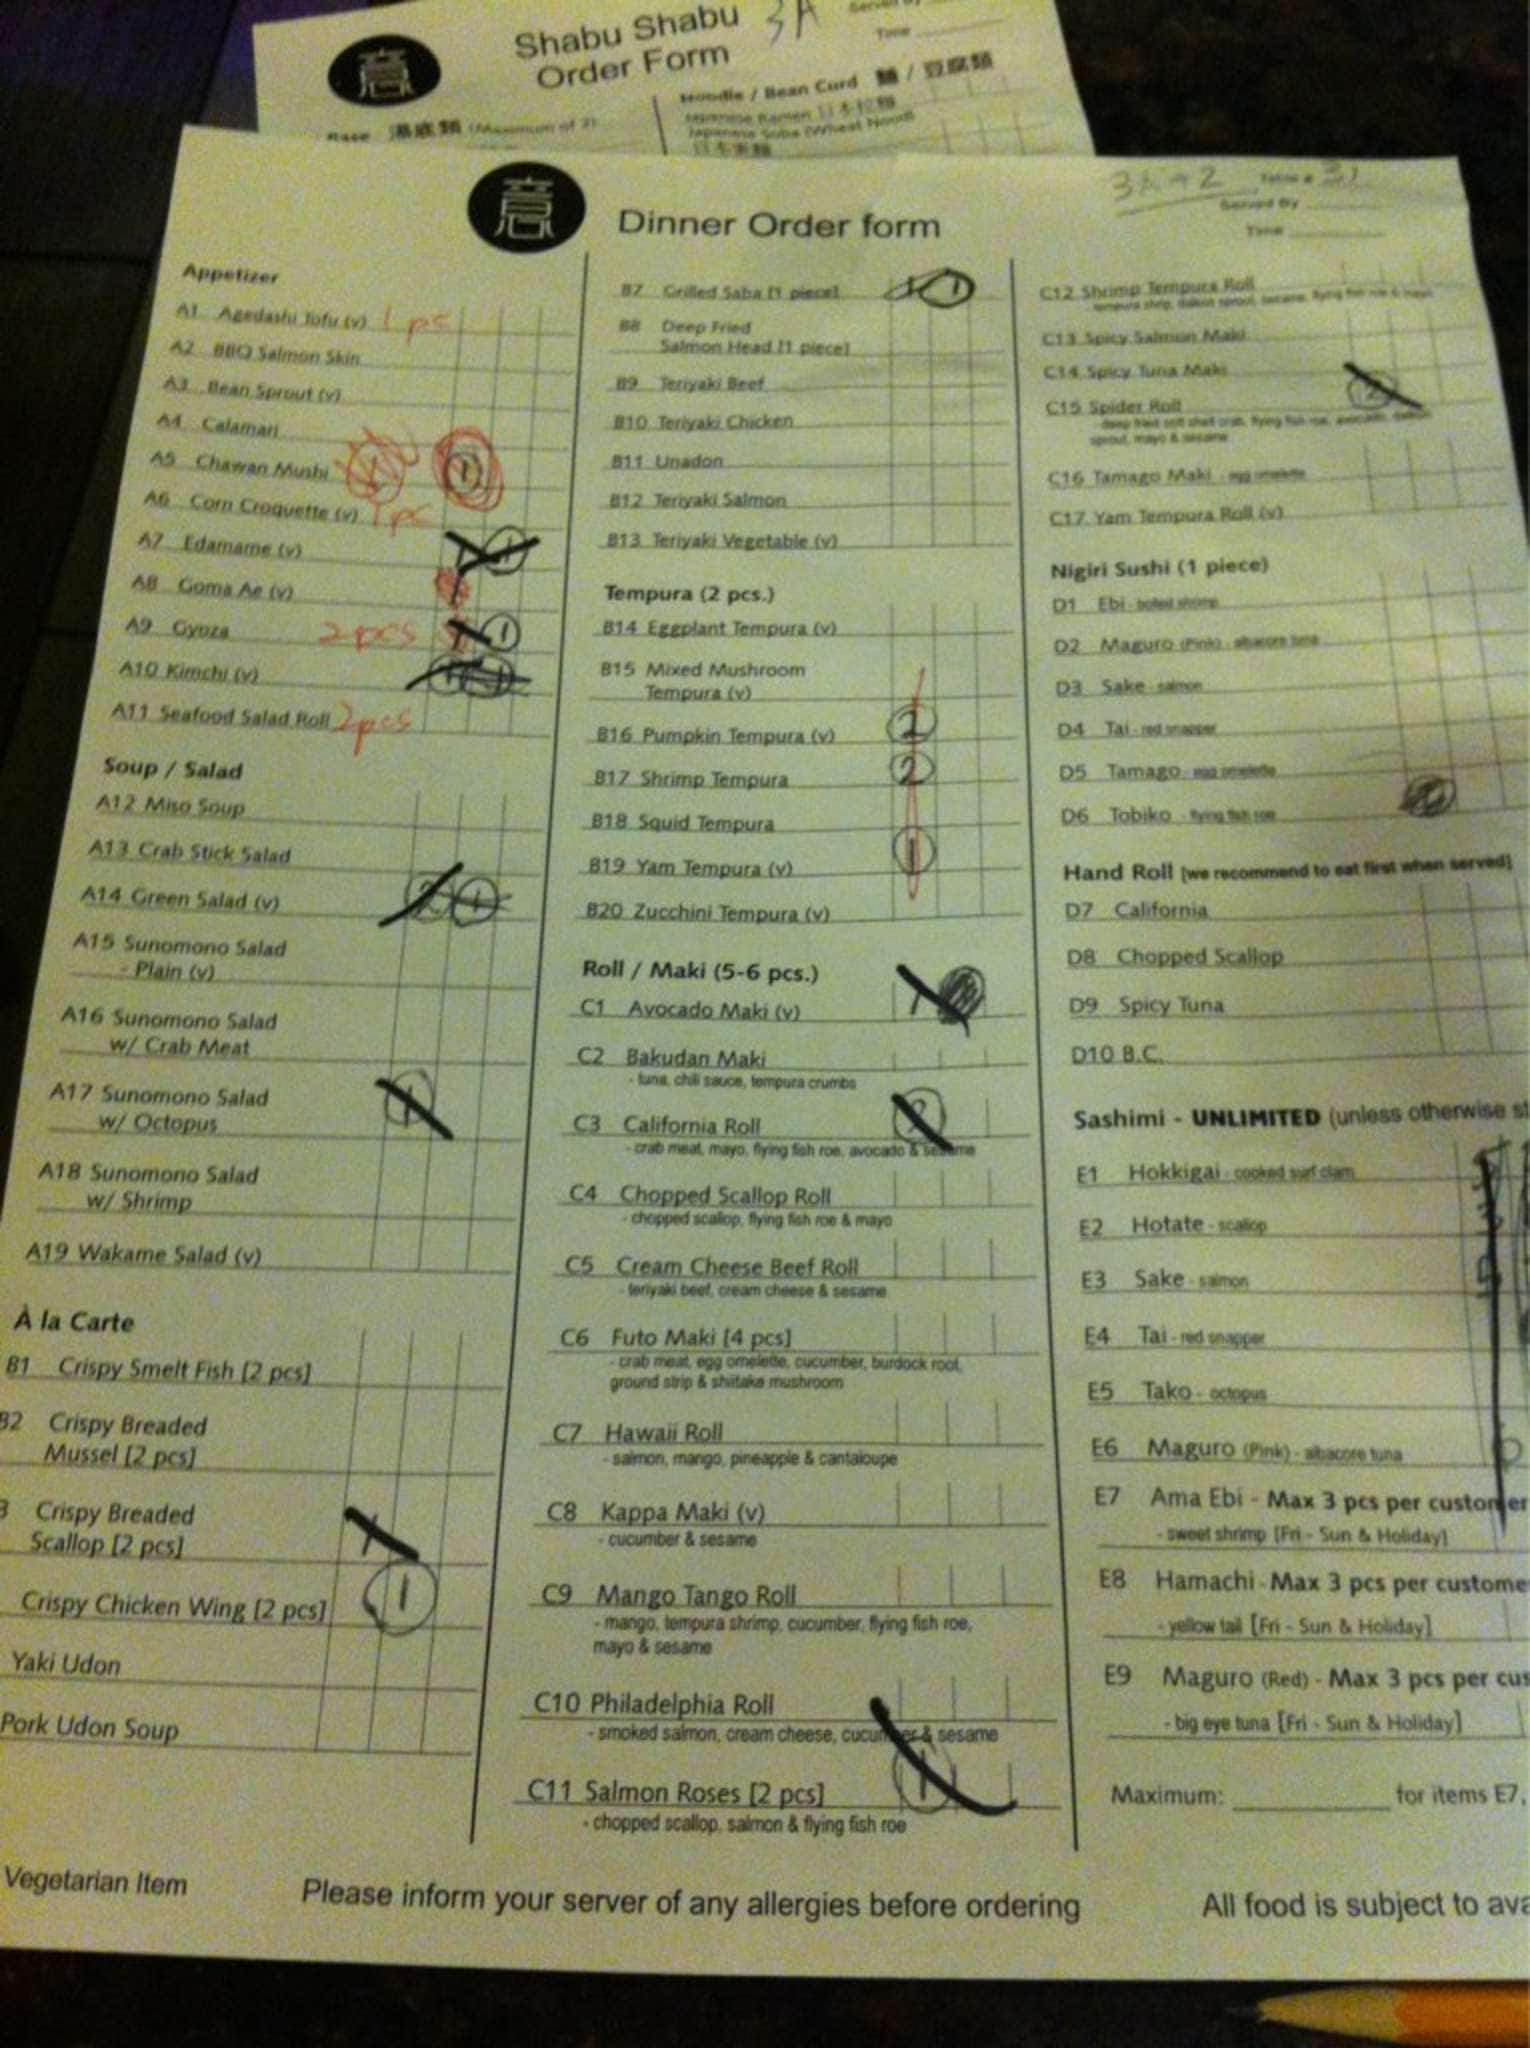 Shabu Shabu 3A
Order Form
Served By
Time
意
Base 湯底類 (Maximum of 2)
Noodle / Bean Curd 麵 / 豆腐類
Japanese Ramen 日本拉麵
Japanese Soba (Wheat Noodl
日本蕎麵
意
Dinner Order form
3A + 2 Table # 31
Served By
Time
Appetizer
A1 Agedashi Tofu (v) 1 pc
A2 BBQ Salmon Skin
A3 Bean Sprout (v)
A4 Calamari
A5 Chawan Mushi 1
A6 Corn Croquette (v) 1pc
A7 Edamame (v) 1 1
A8 Goma Ae (v)
A9 Gyoza 2pcs 1 1
A10 Kimchi (v)
A11 Seafood Salad Roll 2pcs
Soup / Salad
A12 Miso Soup
A13 Crab Stick Salad
A14 Green Salad (v) 2 1
A15 Sunomono Salad
- Plain (v)
A16 Sunomono Salad
w/ Crab Meat
A17 Sunomono Salad
w/ Octopus 1
A18 Sunomono Salad
w/ Shrimp
A19 Wakame Salad (v)
À la Carte
B1 Crispy Smelt Fish [2 pcs]
B2 Crispy Breaded
Mussel [2 pcs]
3 Crispy Breaded
Scallop [2 pcs] 1
Crispy Chicken Wing [2 pcs] 1
Yaki Udon
Pork Udon Soup
B7 Grilled Saba [1 piece] 1
B8 Deep Fried
Salmon Head [1 piece]
B9 Teriyaki Beef
B10 Teriyaki Chicken
B11 Unadon
B12 Teriyaki Salmon
B13 Teriyaki Vegetable (v)
Tempura (2 pcs.)
B14 Eggplant Tempura (v)
B15 Mixed Mushroom
Tempura (v)
B16 Pumpkin Tempura (v) 2
B17 Shrimp Tempura 2
B18 Squid Tempura
B19 Yam Tempura (v) 1
B20 Zucchini Tempura (v)
Roll / Maki (5-6 pcs.)
C1 Avocado Maki (v) 1
C2 Bakudan Maki
- tuna, chili sauce, tempura crumbs
C3 California Roll 2
- crab meat, mayo, flying fish roe, avocado & sesame
C4 Chopped Scallop Roll
- chopped scallop, flying fish roe & mayo
C5 Cream Cheese Beef Roll
- teriyaki beef, cream cheese & sesame
C6 Futo Maki [4 pcs]
- crab meat, egg omelette, cucumber, burdock root,
ground strip & shiitake mushroom
C7 Hawaii Roll
- salmon, mango, pineapple & cantaloupe
C8 Kappa Maki (v)
- cucumber & sesame
C9 Mango Tango Roll
- mango, tempura shrimp, cucumber, flying fish roe,
mayo & sesame
C10 Philadelphia Roll
- smoked salmon, cream cheese, cucumber & sesame
C11 Salmon Roses [2 pcs] 1
- chopped scallop, salmon & flying fish roe
C12 Shrimp Tempura Roll
C13 Spicy Salmon Maki
C14 Spicy Tuna Maki
C15 Spider Roll 2
- deep fried soft shell crab, flying fish roe, avocado, daikon
sprout, mayo & sesame
C16 Tamago Maki - egg omelette
C17 Yam Tempura Roll (v)
Nigiri Sushi (1 piece)
D1 Ebi - boiled shrimp
D2 Maguro (Pink) - albacore tuna
D3 Sake - salmon
D4 Tai - red snapper
D5 Tamago - egg omelette
D6 Tobiko - flying fish roe
Hand Roll [we recommend to eat first when served]
D7 California
D8 Chopped Scallop
D9 Spicy Tuna
D10 B.C.
Sashimi - UNLIMITED (unless otherwise st
E1 Hokkigai - cooked surf clam
E2 Hotate - scallop
E3 Sake - salmon
E4 Tai - red snapper
E5 Tako - octopus
E6 Maguro (Pink) - albacore tuna
E7 Ama Ebi - Max 3 pcs per customer
- sweet shrimp [Fri - Sun & Holiday]
E8 Hamachi - Max 3 pcs per custome
- yellow tail [Fri - Sun & Holiday]
E9 Maguro (Red) - Max 3 pcs per cus
- big eye tuna [Fri - Sun & Holiday]
Maximum: for items E7,
Vegetarian Item
Please inform your server of any allergies before ordering
All food is subject to ava